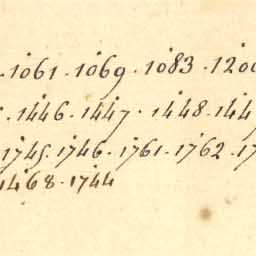 1061 . 1069 . 1083 . 120
. 1446 . 1447 . 1448 . 144
1745 . 1746 . 1761 . 1762 . 17
1468 . 1744